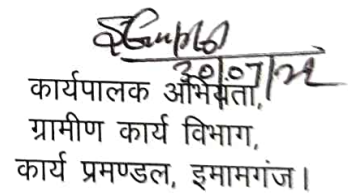 30/07/22
कार्यपालक अभियंता,
ग्रामीण कार्य विभाग,
कार्य प्रमण्डल, इमामगंज।